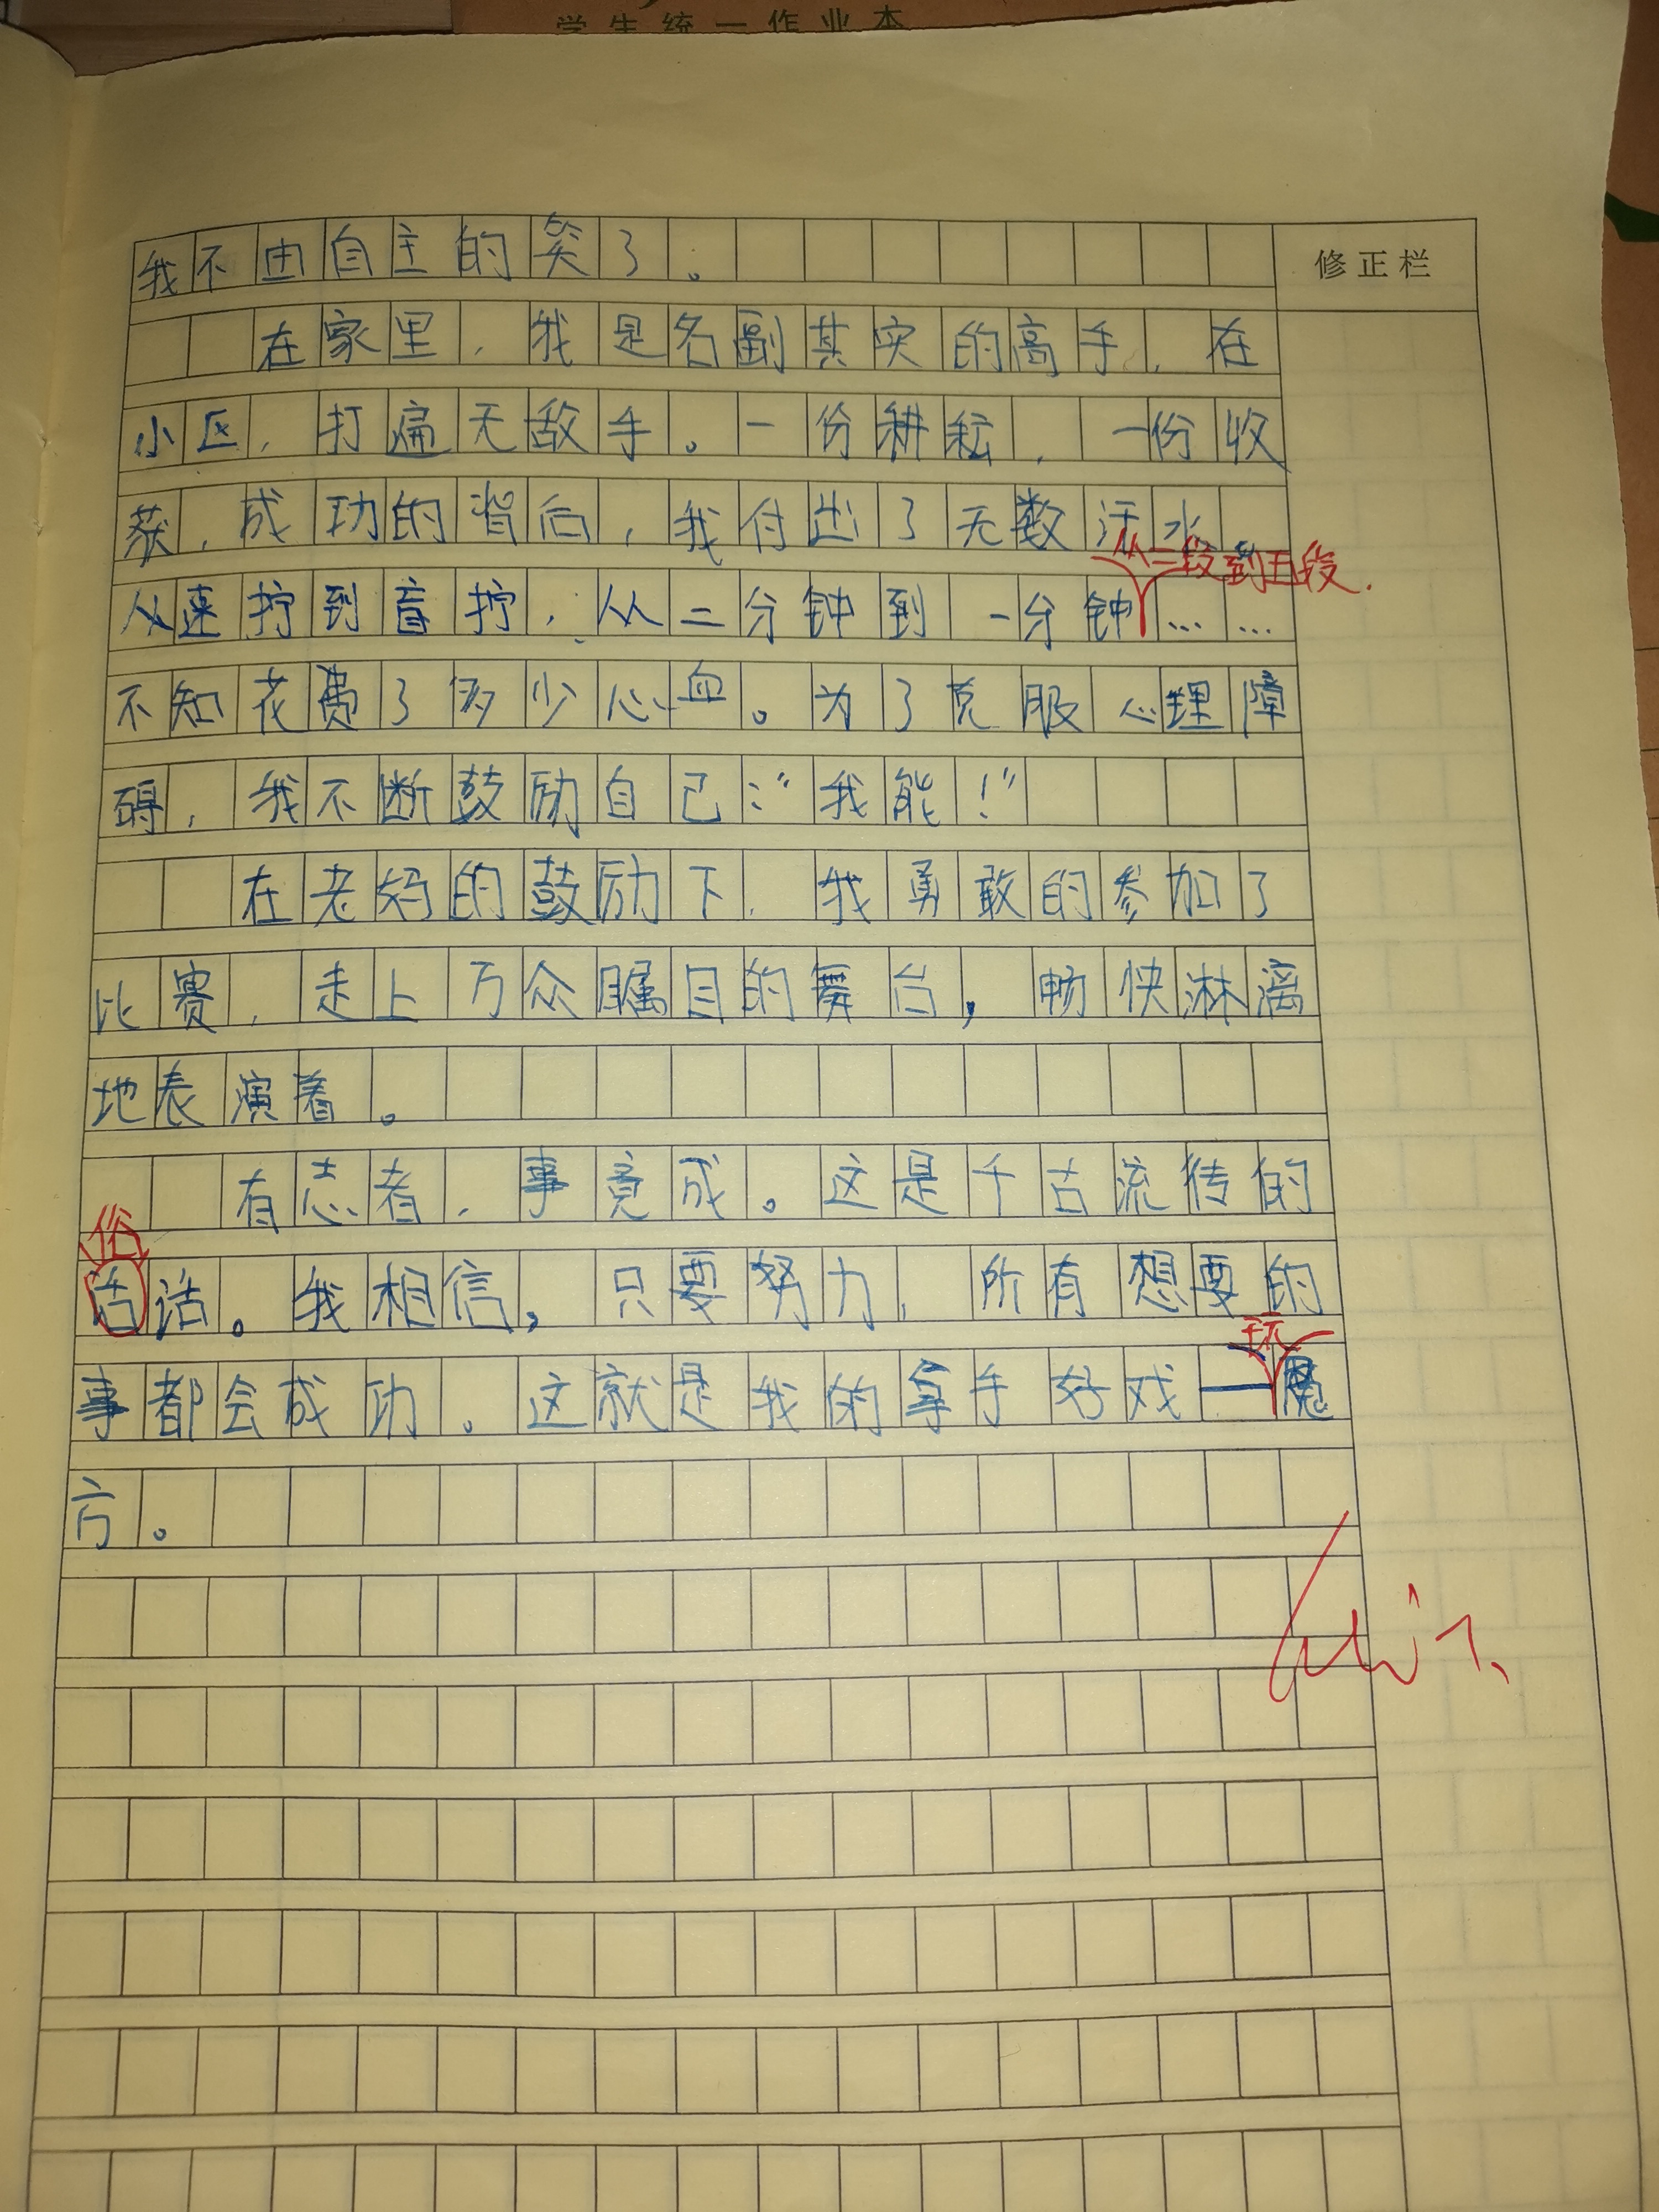 学生统一作业本
修正栏
我不由自主的笑了。
在家里，我是名副其实的高手，在
小区，打遍无敌手。一份耕耘，一份收
获，成功的背后，我付出了无数汗水，
从二段到五段.
从速拧到盲拧，从二分钟到一分钟……
不知花费了多少心血。为了克服心理障
碍，我不断鼓励自己：“我能！”
在老妈的鼓励下，我勇敢的参加了
比赛，走上万众瞩目的舞台，畅快淋漓
地表演着。
有志者，事竟成。这是千古流传的
俗
话。我相信，只要努力，所有想要的
玩
事都会成功。这就是我的拿手好戏——魔
方。